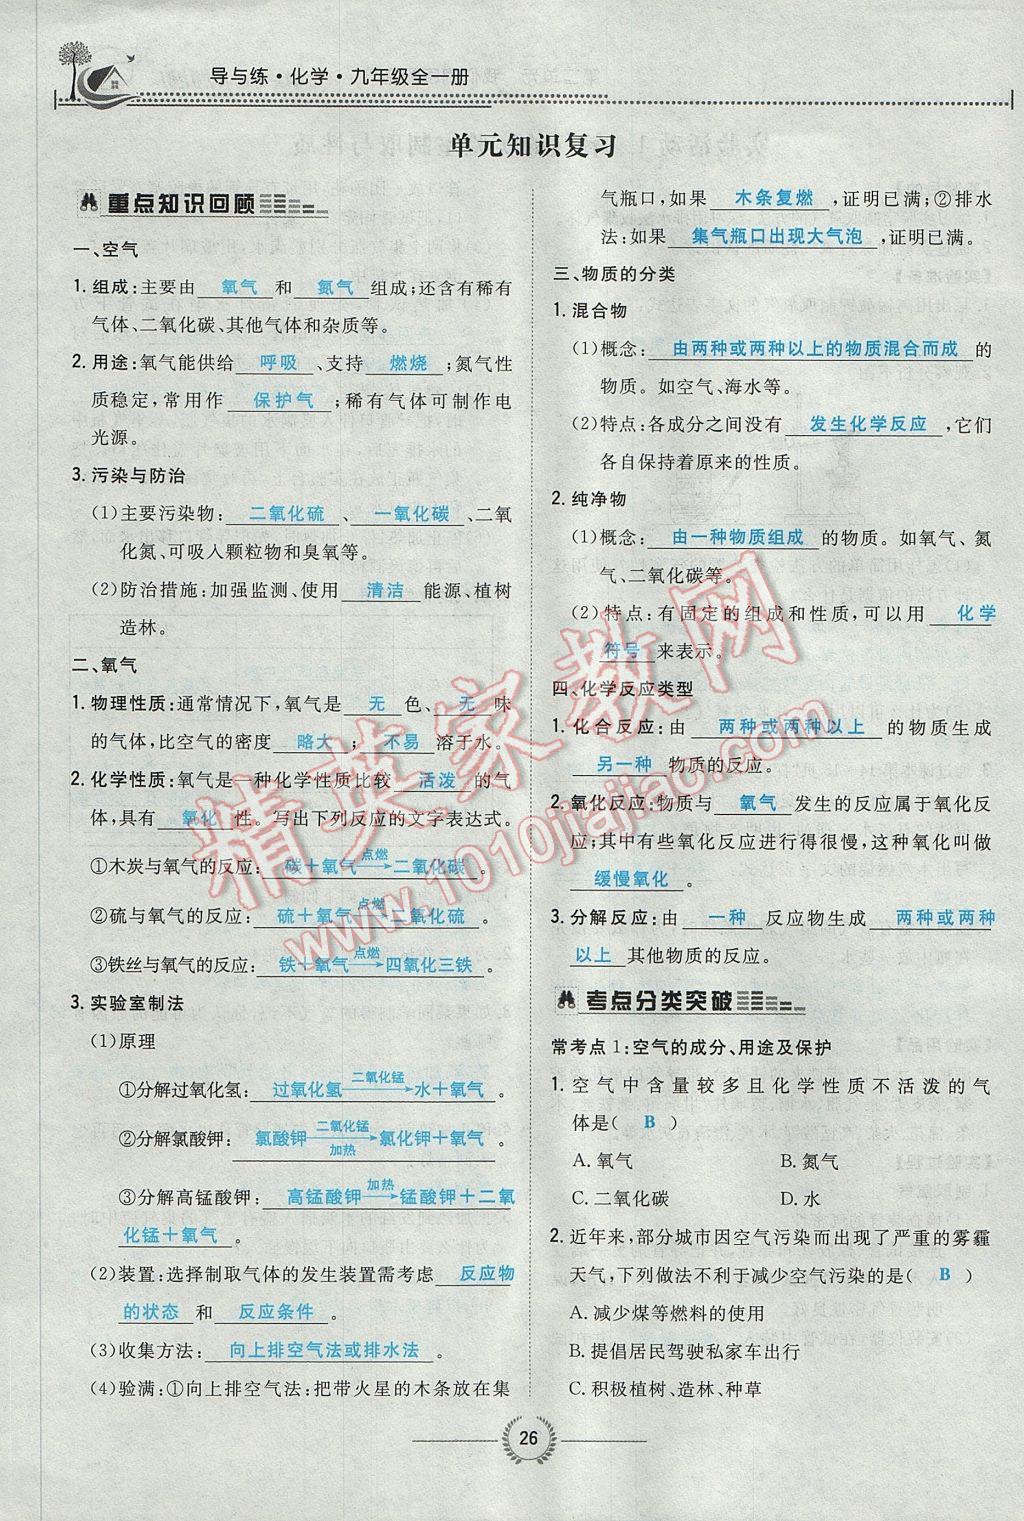 导与练·化学·九年级全一册
单元知识复习
重点知识回顾
一、空气
1. 组成:主要由 氧气 和 氮气 组成;还含有稀有
气体、二氧化碳、其他气体和杂质等。
2. 用途:氧气能供给 呼吸 、支持 燃烧 ;氮气性
质稳定,常用作 保护气 ;稀有气体可制作电
光源。
3. 污染与防治
(1)主要污染物: 二氧化硫 、 一氧化碳 、二氧
化氮、可吸入颗粒物和臭氧等。
(2)防治措施:加强监测、使用 清洁 能源、植树
造林。
二、氧气
1. 物理性质:通常情况下,氧气是 无 色、 无 味
的气体,比空气的密度 略大 ; 不易 溶于水。
2. 化学性质:氧气是一种化学性质比较 活泼 的气
体,具有 氧化 性。写出下列反应的文字表达式。
①木炭与氧气的反应: 碳+氧气 点燃→ 二氧化碳 。
②硫与氧气的反应: 硫+氧气 点燃→ 二氧化硫 。
③铁丝与氧气的反应: 铁+氧气 点燃→ 四氧化三铁 。
3. 实验室制法
(1)原理
①分解过氧化氢: 过氧化氢 二氧化锰→ 水+氧气 。
②分解氯酸钾: 氯酸钾 二氧化锰→加热 氯化钾+氧气 。
③分解高锰酸钾: 高锰酸钾 加热→ 锰酸钾+二氧
化锰+氧气 。
(2)装置:选择制取气体的发生装置需考虑 反应物
的状态 和 反应条件 。
(3)收集方法: 向上排空气法或排水法 。
(4)验满:①向上排空气法:把带火星的木条放在集
气瓶口,如果 木条复燃 ,证明已满;②排水
法:如果 集气瓶口出现大气泡 ,证明已满。
三、物质的分类
1. 混合物
(1)概念: 由两种或两种以上的物质混合而成 的
物质。如空气、海水等。
(2)特点:各成分之间没有 发生化学反应 ,它们
各自保持着原来的性质。
2. 纯净物
(1)概念: 由一种物质组成 的物质。如氧气、氮
气、二氧化碳等。
(2)特点:有固定的组成和性质,可以用 化学
符号 来表示。
四、化学反应类型
1. 化合反应:由 两种或两种以上 的物质生成
另一种 物质的反应。
2. 氧化反应:物质与 氧气 发生的反应属于氧化反
应;其中有些氧化反应进行得很慢,这种氧化叫做
缓慢氧化 。
3. 分解反应:由 一种 反应物生成 两种或两种
以上 其他物质的反应。
考点分类突破
常考点1:空气的成分、用途及保护
1. 空气中含量较多且化学性质不活泼的气
体是( B )
A. 氧气 B. 氮气
C. 二氧化碳 D. 水
2. 近年来,部分城市因空气污染而出现了严重的雾霾
天气,下列做法不利于减少空气污染的是( B )
A. 减少煤等燃料的使用
B. 提倡居民驾驶私家车出行
C. 积极植树、造林、种草
26
精英家教网
www.1010jiajiao.com